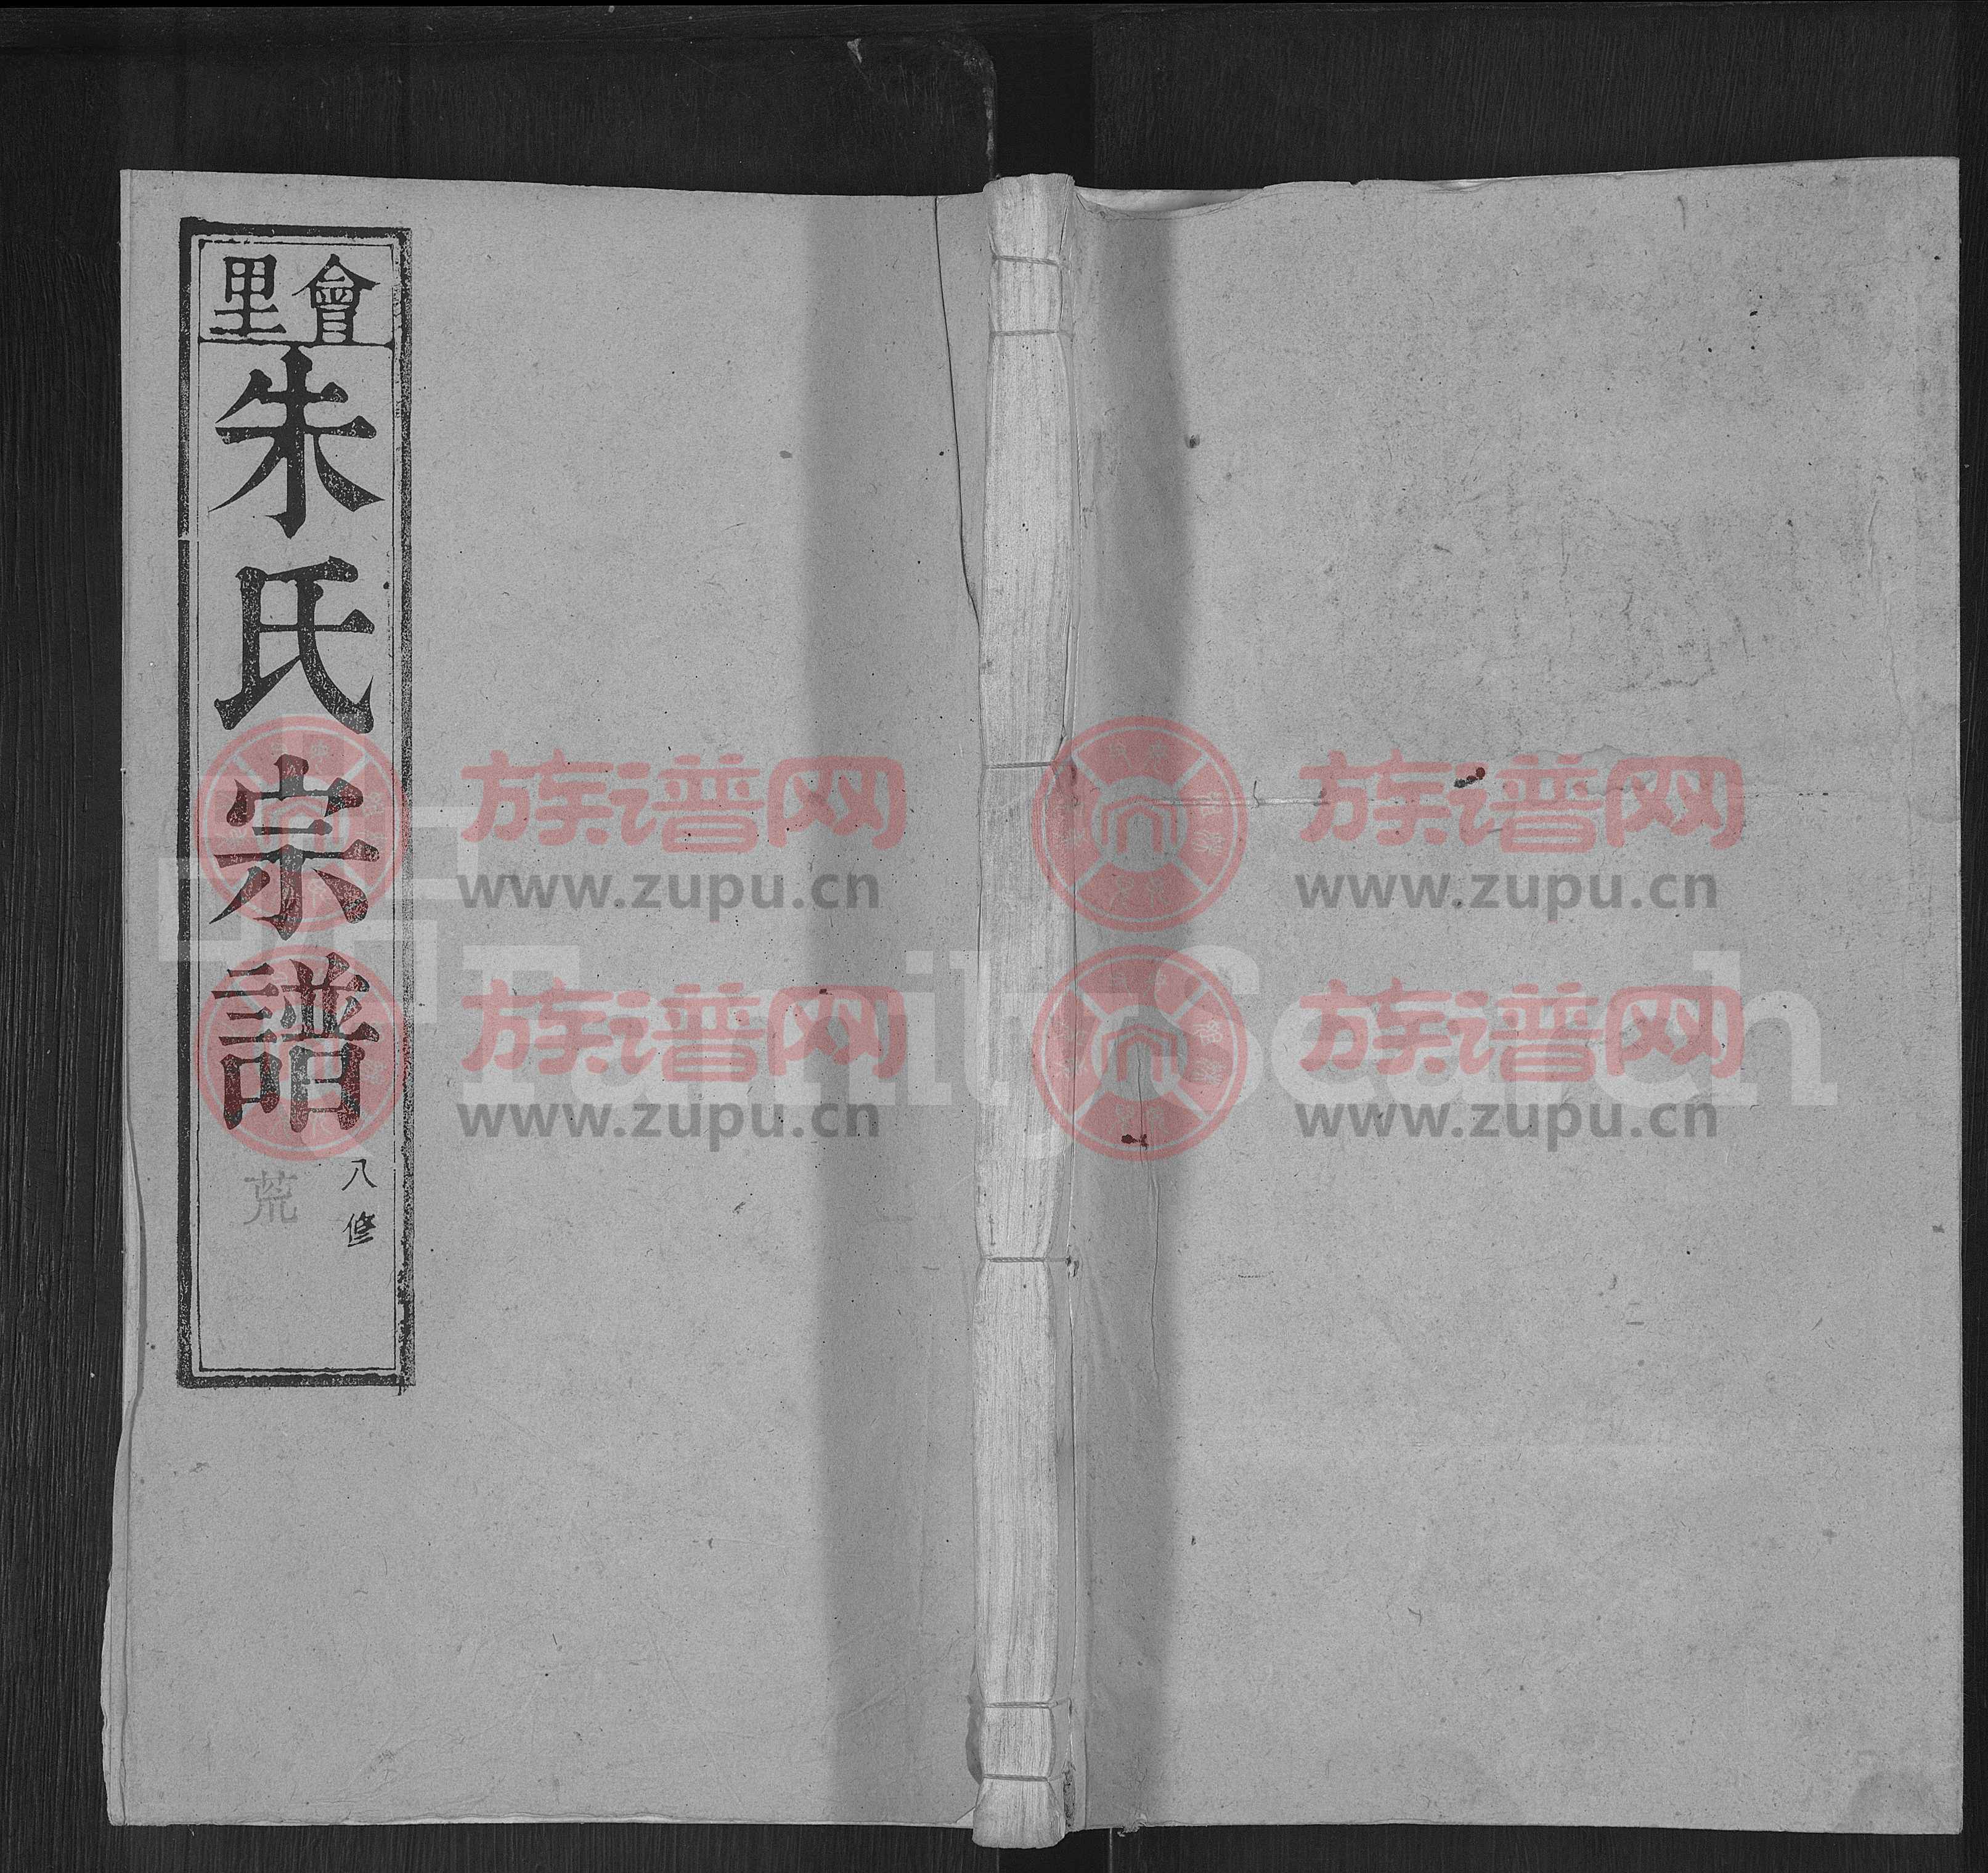 會里
朱氏宗譜
八修
荒
族谱网
www.zupu.cn
族谱网
www.zupu.cn
FamilySearch
族谱网
www.zupu.cn
族谱网
www.zupu.cn